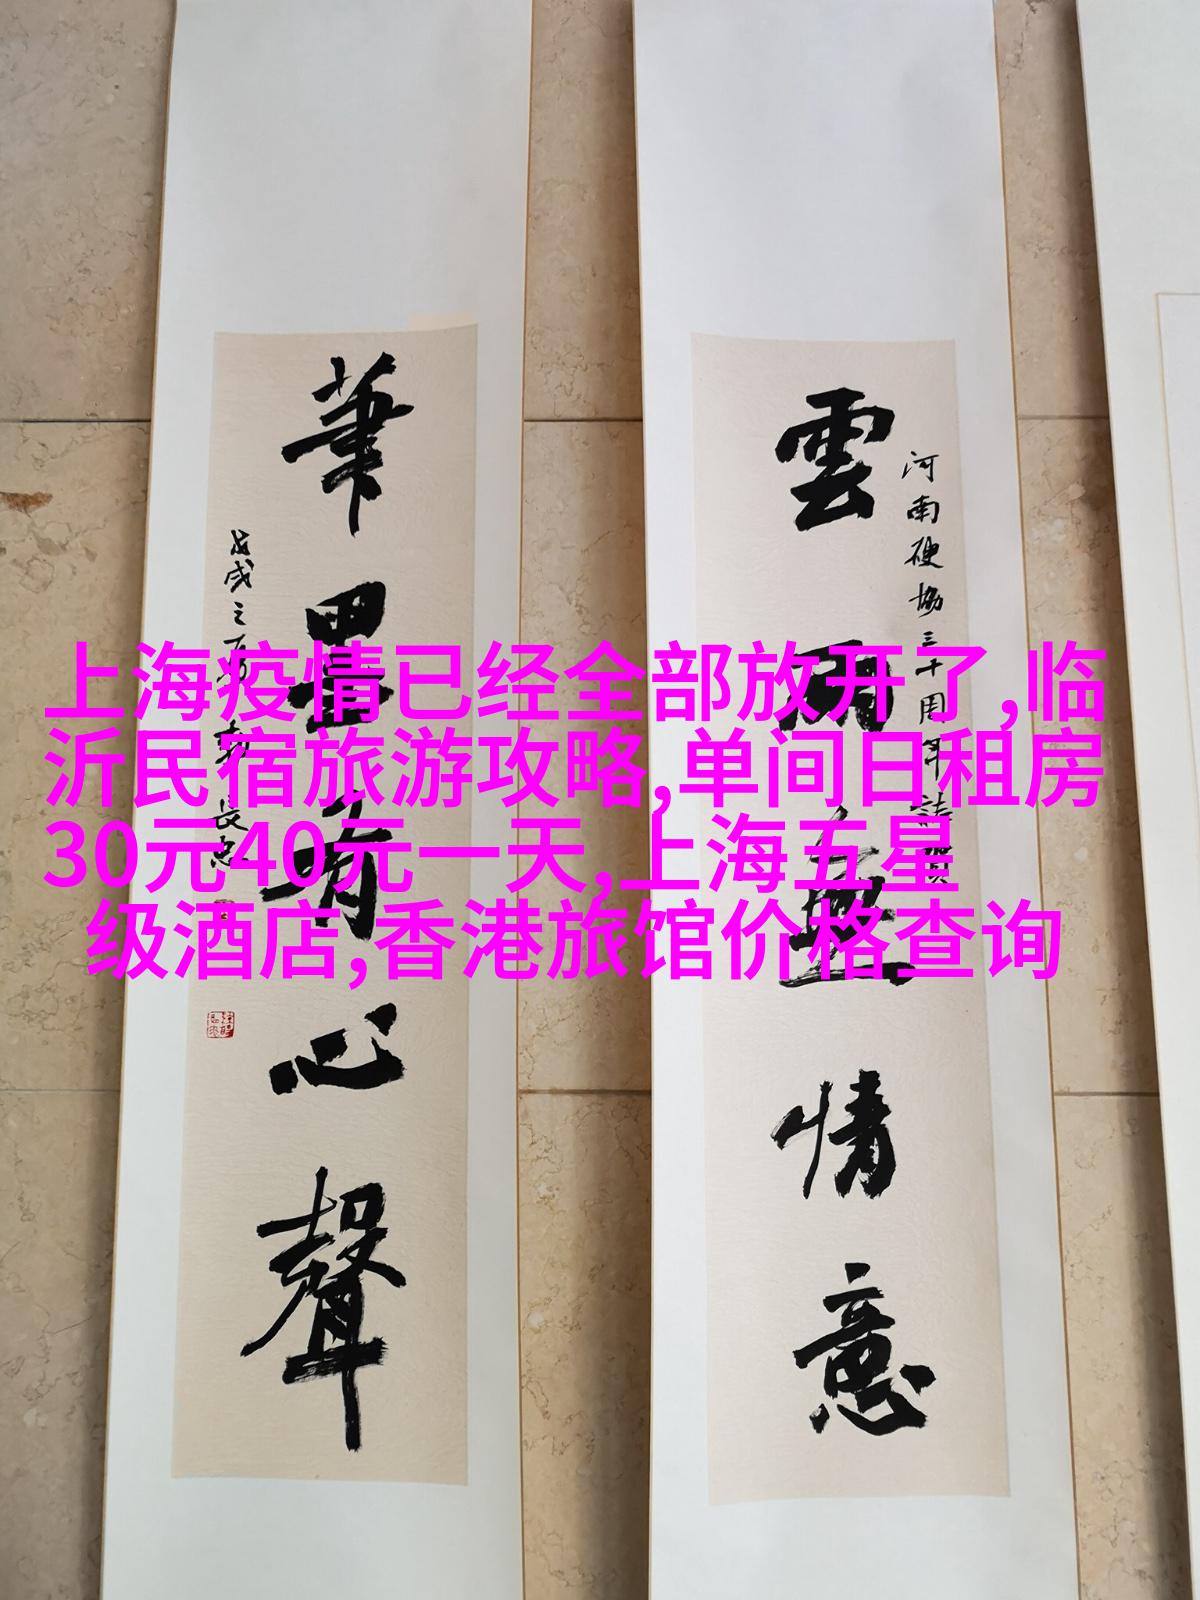 雲雨無情意
河南硬協三十周年誌賀
筆墨有心聲
戊戌之
上海疫情已经全部放开了,临
沂民宿旅游攻略,单间日租房
30元40元一天,上海五星
级酒店,香港旅馆价格查询